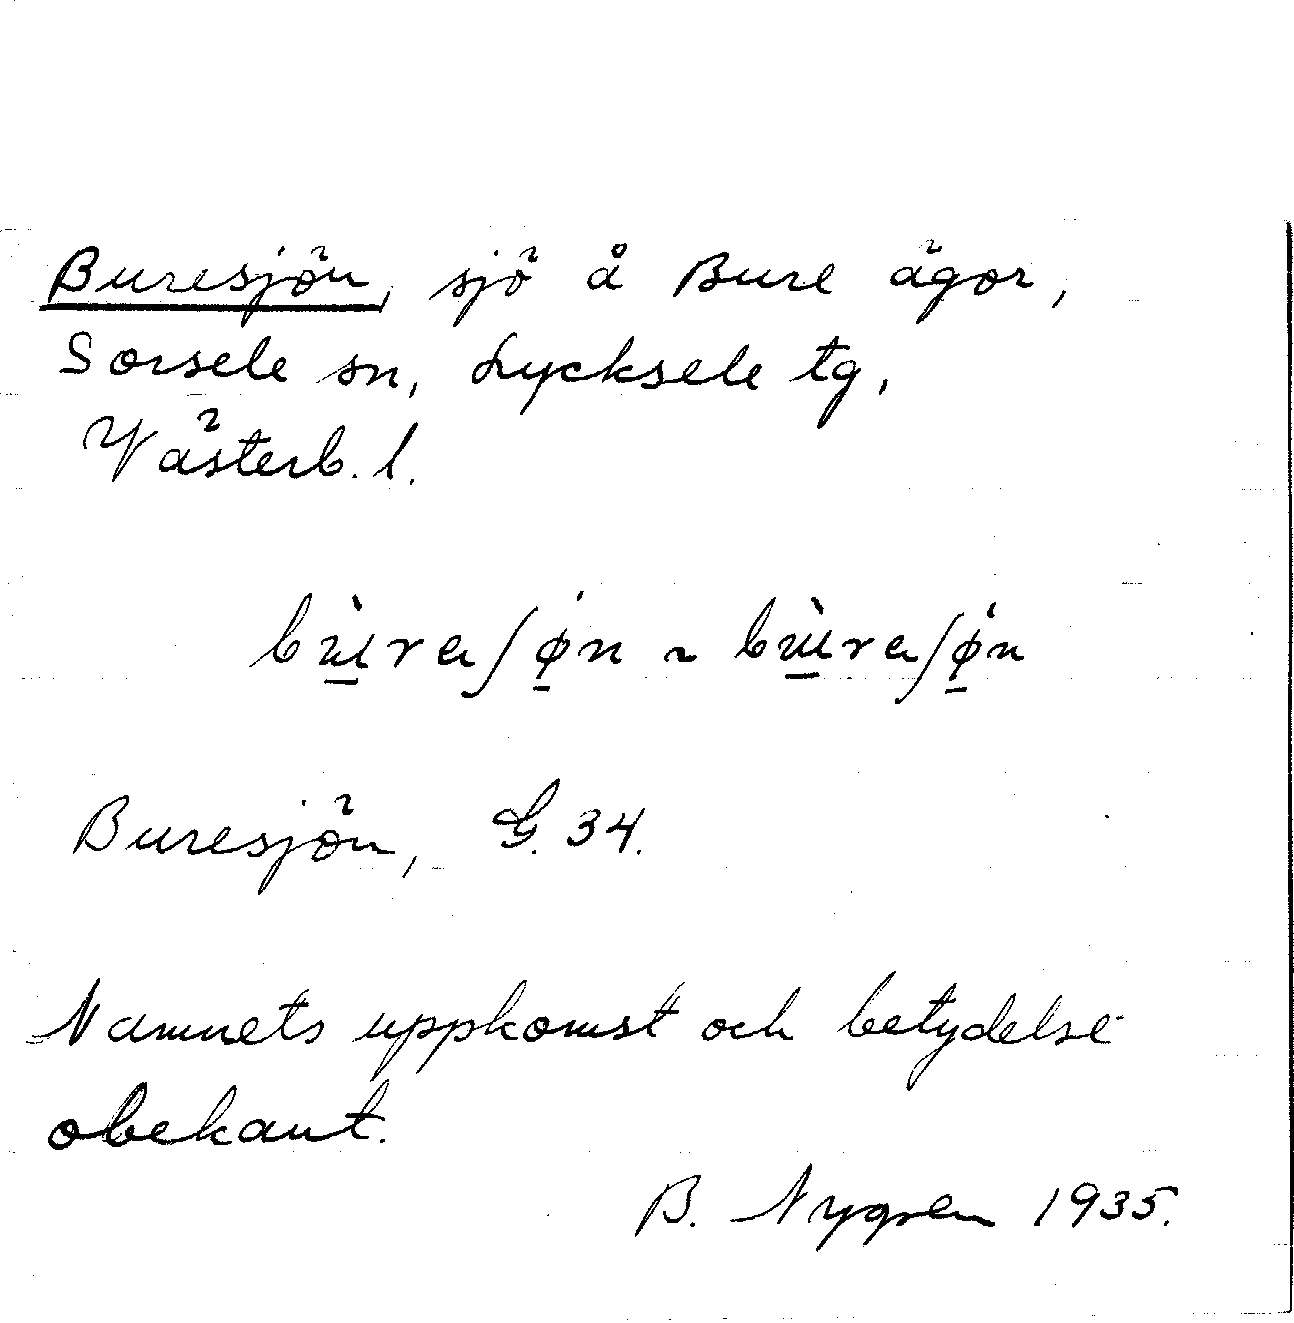 Buresjön, sjö å Bure ägor,
Sorsele sn, Lycksele tg,
Västerb. l.
bɯ̱̀raʃǿ̱n ~ bɯ̱̀raʃǿ̱n
Buresjön, G. 34.
Namnets uppkomst och betydelse
obekant.
B. Nygren 1935.